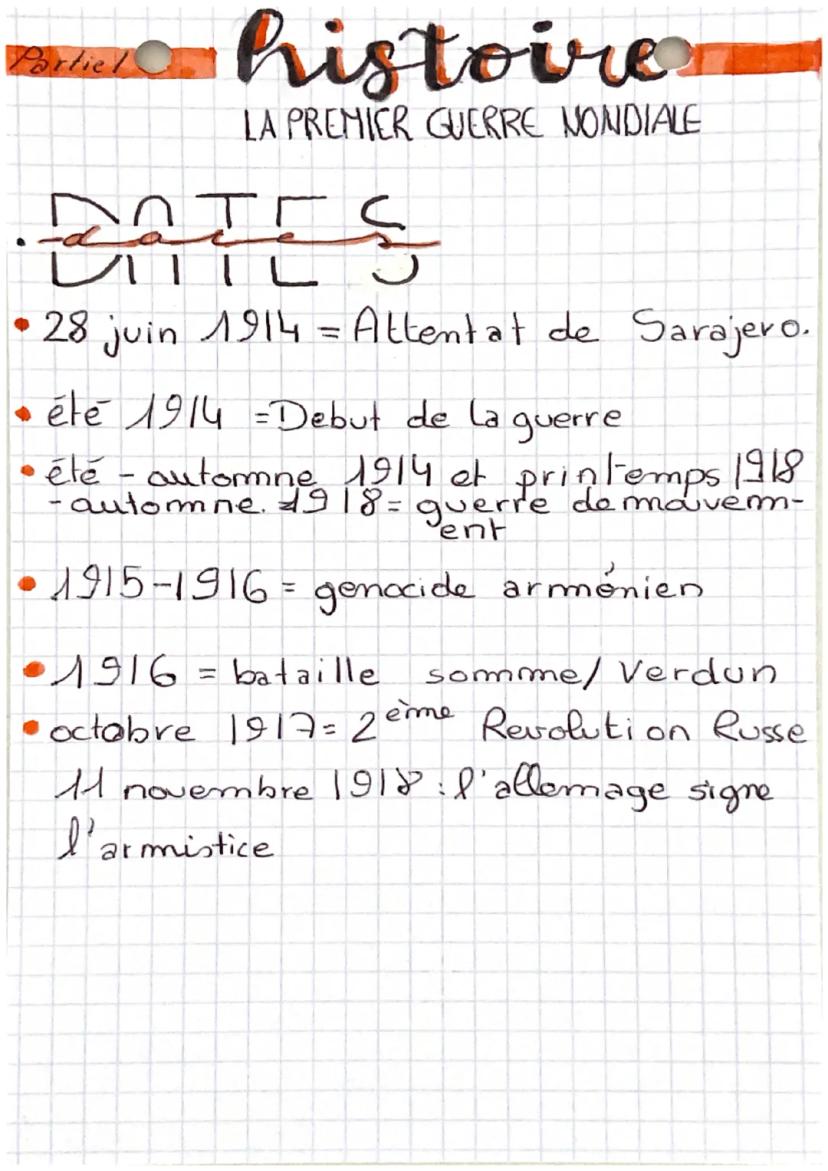 Partie 1
histoire
LA PREMIER GUERRE MONDIALE
DATES
dates
• 28 juin 1914 = Attentat de Sarajero.
• été 1914 = Debut de la guerre
• été - automne 1914 et printemps 1918
- automne. 1918 = guerre de mouvem-
ent
• 1915-1916 = genocide arménien
• 1916 = bataille somme / Verdun
• octobre 1917 = 2ème Revolution Russe
11 novembre 1918 : l'allemage signe
l'armistice